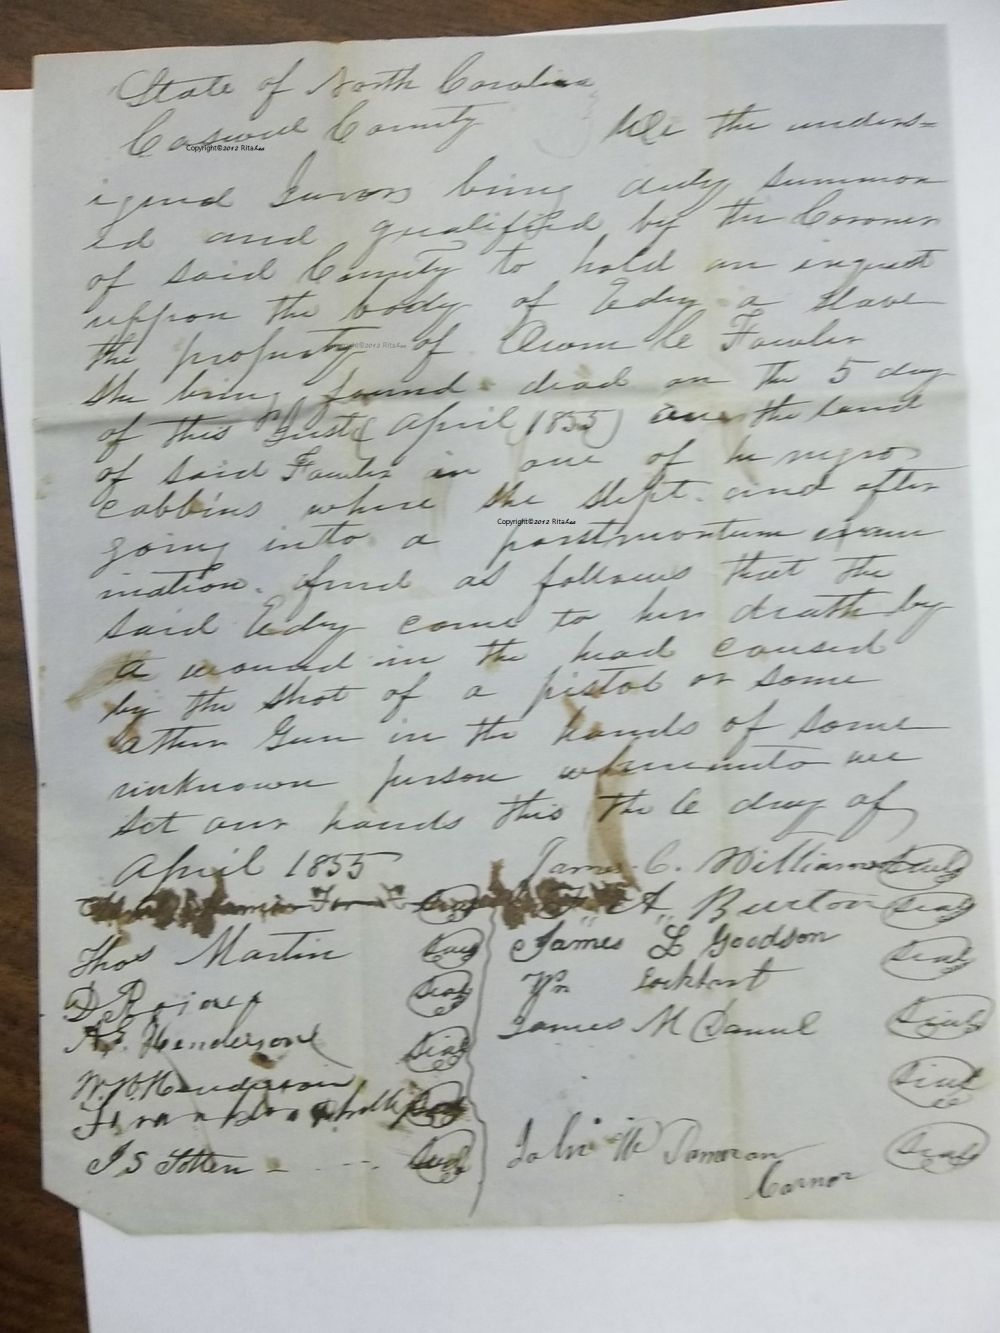 State of North Carolina
Caswell County We the unders=
Copyright©2012 RitaLea
igned Jurors being duly summon
ed and qualified by the Coroner
of said County to hold an inquest
uppon the body of Edy a slave
the property of C Fowler
Copyright©2012 RitaLea
she being found dead on the 5 day
of this Inst (April 1855) on the land
of said Fowler in one of he negro
cabbins where she slept. and after
Copyright©2012 RitaLea
going into a postmortum exam
ination. find as follows that the
said Edy come to her death by
a wound in the head caused
by the shot of a pistol or some
other Gun in the hands of some
unknown person whereunto we
set our hands this the 6 day of
April 1855 James C. Williamson Seal
Seal A Burton Seal
Thos Martin Seal James L Goodson Seal
Seal Wm Lockhart Seal
A. E. Henderson Seal James McDaniel Seal
W. B. Henderson
J S Totten Seal John W Dameron Seal
Cornor